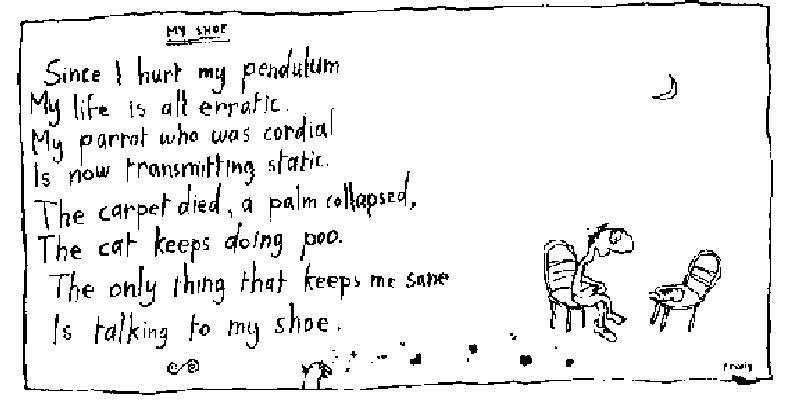 MY SHOE
Since I hurt my pendulum
My life is all erratic.
My parrot who was cordial
Is now transmitting static.
The carpet died, a palm collapsed,
The cat keeps doing poo.
The only thing that keeps me sane
Is talking to my shoe.